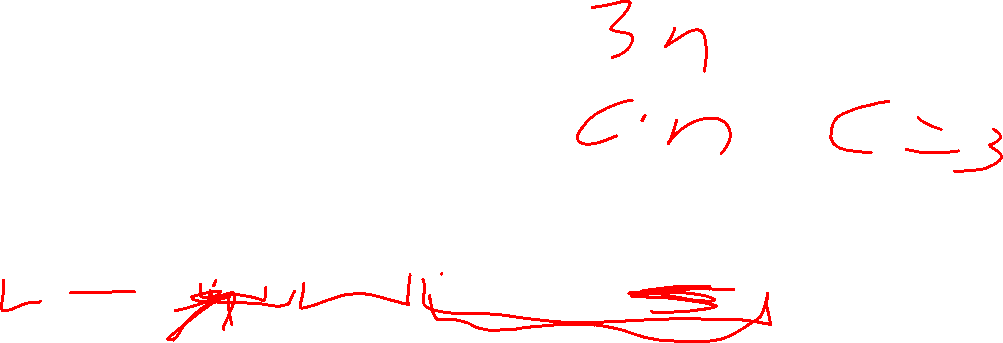 3n
c·n c=3